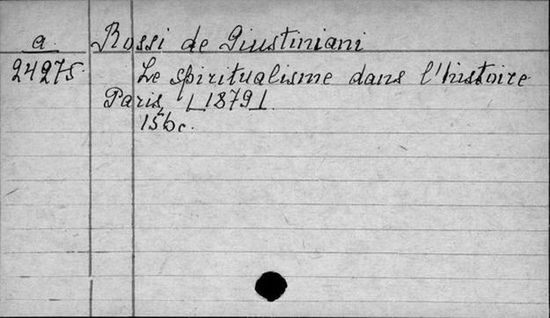 a Rossi de Giustiniani
24275. Le spiritualisme dans l'histoire
Paris, [1879].
156 c.